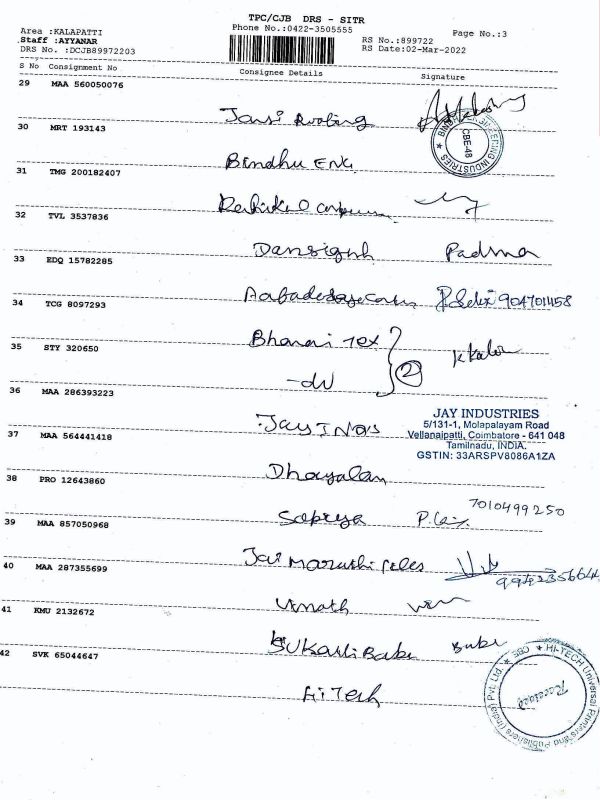 TPC/CJB DRS - SITR
Area :KALAPATTI
Phone No.:0422-3505555
Page No.:3
Staff :AYYANAR
RS No.:899722
DRS No. :DCJB89972203
RS Date:02-Mar-2022
S No Consignment No Consignee Details Signature
29 MAA 560050076
Jansi Roofing
30 MRT 193143
BINDHU ENGINEERING INDUSTRIES CBE-48
Bindhu ENG
31 TMG 200182407
32 TVL 3537836
Padma
33 EDQ 15782285
9047011158
34 TCG 8097293
Bharani Tex
35 STY 320650
2
36 MAA 286393223
Jay INDS
JAY INDUSTRIES
5/131-1, Molapalayam Road
Vellanaipatti, Coimbatore - 641 048
Tamilnadu, INDIA.
GSTIN: 33ARSPV8086A1ZA
37 MAA 564441418
Dhayalan
38 PRO 12643860
7010499250
39 MAA 857050968
Jai Maruthi
40 MAA 287355699
9942356644
Vinoth
41 KMU 2132672
Babu
42 SVK 65044647
Hi Tech
HI-TECH Universal Printers and Publishers (India) Pvt. Ltd. CBE
Received